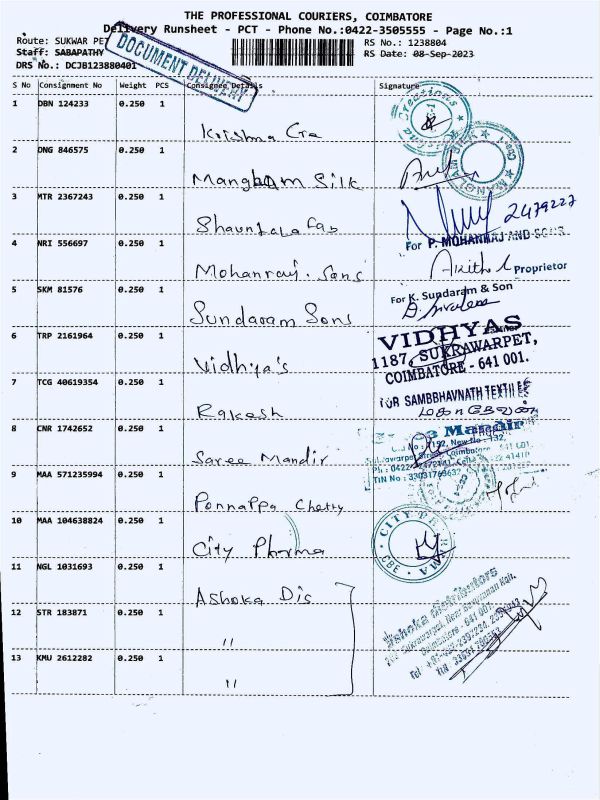 THE PROFESSIONAL COURIERS, COIMBATORE
Delivery Runsheet - PCT - Phone No.:0422-3505555 - Page No.:1
Route: SUKWAR PET
RS No.: 1238804
Staff: SABAPATHY
RS Date: 08-Sep-2023
DRS No.: DCJB123880401
DOCUMENT DELIVERY
S No Consignment No Weight PCS Consignee Details Signature
1 DBN 124233 0.250 1
Krishna Cra
2 DNG 846575 0.250 1
Manglam Silk
3 MTR 2367243 0.250 1
2479227
Shauntala Fab
For P. MOHANRAJ AND SONS.
4 NRI 556697 0.250 1
Mohanraj. Sons
Proprietor
5 SKM 81576 0.250 1
For K. Sundaram & Son
Sundaram Sons
VIDHYAS
6 TRP 2161964 0.250 1
1187, SUKRAWARPET,
COIMBATORE - 641 001.
Vidhya's
7 TCG 40619354 0.250 1
FOR SAMBBHAVNATH TEXTILES
Rakesh
8 CNR 1742652 0.250 1
Mandir
Saree Mandir
9 MAA 571235994 0.250 1
Ponnappa Chetty
10 MAA 104638824 0.250 1
City Pharma
CITY PHARMA
CBE
11 NGL 1031693 0.250 1
Ashoka Dis
Ashoka Distributors
12 STR 183871 0.250 1
"
13 KMU 2612282 0.250 1
"